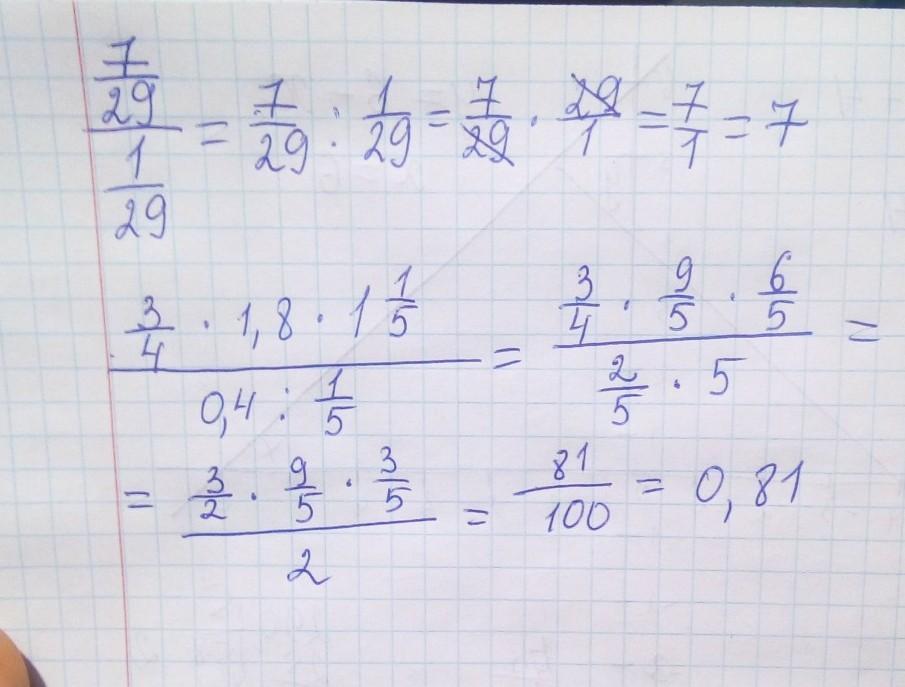 7/29 / 1/29 = 7/29 : 1/29 = 7/29 · 29/1 = 7/1 = 7
3/4 · 1,8 · 1 1/5 / 0,4 : 1/5 = 3/4 · 9/5 · 6/5 / 2/5 · 5 =
= 3/2 · 9/5 · 3/5 / 2 = 81/100 = 0,81